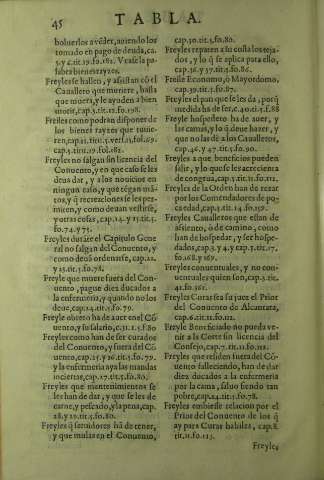 45 TABLA.
boluerlos a vẽder, auiendo los
tomado en pago de deuda, ca.
5.y 6.tit.19.fo.182. Vease la pa-
labra bienes rayzes.
Freyles se hallen, y assistan cõ el
Cauallero que muriere, hasta
que muera, y le ayuden a bien
morir, cap.3.tit.12.fo.198.
Freiles como podran disponer de
los bienes rayzes que tuuie-
ren, cap.
Freyles no salgan sin licencia del
Conuento, y en que caso se les
deua dar, y a los nouicios en
ningun caso, y que tẽgan mã-
tos, y q̃ recreaciones se les per-
miten, y como deuan vestirse,
y otras cosas, cap.14. y 15.tit.5.
fo.74. y 75.
Freyles durãte el Capitulo Gene
ral no salgan del Conuento, y
como deuẽ ordenarse, cap.22.
y 25.tit.5.fo.78.
Freyle que muere fuera del Con-
uento, pague diez ducados a
la enfermeria, y quando no los
deue, cap.24.tit.5.fo.79.
Freyle obrero ha de auer en el Cõ
uento, y su salario, c.31.t.5.f.80
Freyles como han de ser curados
del Conuento, y fuera del Cõ-
uento, cap.25.y 26.tit.5.fo.79.
y la enfermeria aya las mandas
inciertas, cap.27.tit.5.fo.80.
Freyles que mantenimientos se
les han de dar, y que se les dè
carne, y pescado, y la pena, cap.
28.y 29.tit.5.fo.80.
Freyles q̃ seruidores hã de tener,
y que mulas en el Conuento,
cap.30.tit.5.fo.80.
Freyles reparen a su costa los teja-
dos, y lo q̃ se aplica para ello,
cap.36.y 37.tit.5.fo.86.
Freile Economo, o Mayordomo.
cap.39.tit.5.fo.87.
Freyles el pan que se les da, porq̃
medida ha de ser, c.40.tit.5.f.88
Freyle hospitalero ha de auer, y
las camas, y lo q̃ deue hazer, y
que no las dè a los Caualleros,
cap.46. y 47.tit.5.fo.90.
Freyles a que beneficios pueden
salir, y lo que se les acrecienta
de congrua, cap.3.tit.11.fo.112.
Freyles de la Orden han de rezar
por los Comendadores de po-
ca edad, cap.4.tit.14.fo.159.
Freyles Caualleros que estan de
assiento, o de camino, como
han de hospedar, y ser hospe-
dados, cap.3. y 4.y cap.7.tit.17.
fo.168.y 169.
Freyles conuentuales, y no con-
uentuales quien son, cap.3.tit.
41.fo.361.
Freyles Curas sea su juez el Prior
del Conuento de Alcantara,
cap.6.tit.11.fo.112.
Freyle Beneficiado no pueda ve-
nir a la Corte sin licencia del
Consejo, cap.7.tit.11.fo.112.
Freyles que residen fuera del Cõ-
uento falleciendo, han de dar
diez ducados a la enfermeria
por la cama, saluo siendo tan
pobre, cap.24.tit.5.fo.78.
Freyles embiesse relacion por el
Prior del Conuento de los q̃
ay para Curas habiles, cap.8.
tit.11.fo.113.
Freyles